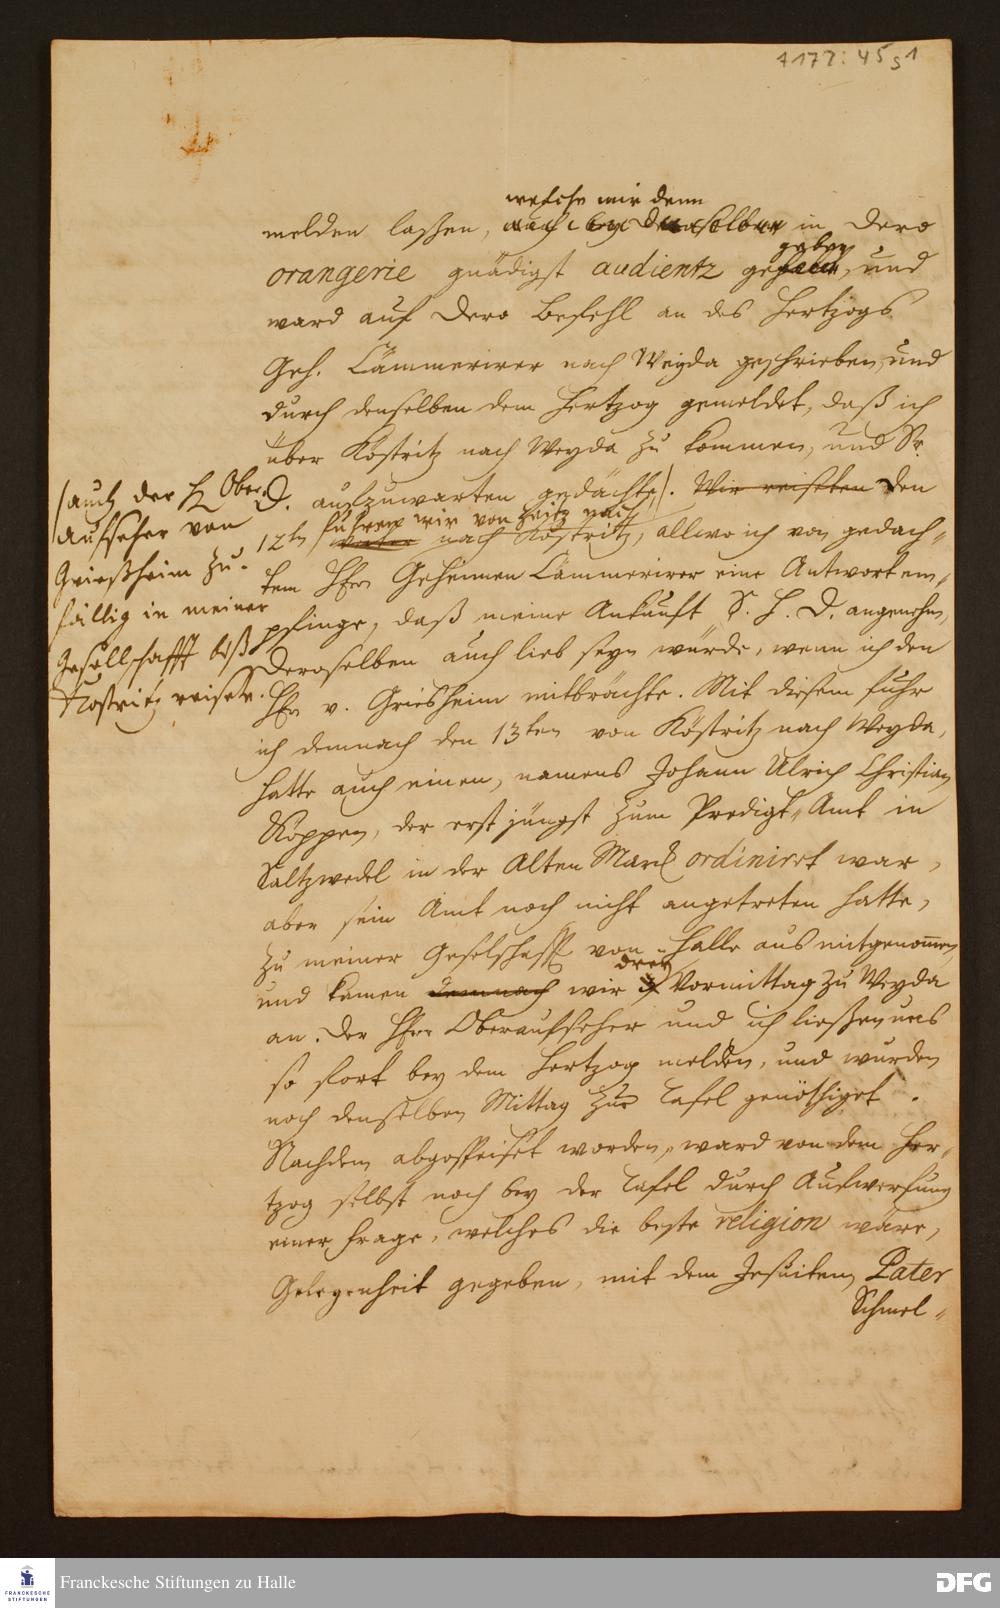 A 177: 45 s 1
welche mir denn
melden lassen, auch bey derselben in Dero
geben
orangerie gnädigst audientz gehabt, und
ward auf Dero Befehl an des Hertzogs
Geh. Cämmerirer nach Weyda geschrieben, und
durch denselben dem Hertzog gemeldet, daß ich
über Köstritz nach Weyda zu kommen, und Sr.
D. aufzuwarten gedächte. Wir reiseten den
fuhren wir von Zeitz nach
12ten nach Köstritz, allwo ich von gedach-
tem Hhrn Geheimen Cämmerirer eine Antwort em-
pfinge, daß meine Ankunft S. H. D. angenehm,
Deroselben auch lieb seyn würde, wenn ich den
Hhn v. Griesheim mitbrächte. Mit diesem fuhr
ich demnach den 13ten von Köstritz nach Weyda,
hatte auch einen, namens Johann Ulrich Christian
Köppen, der erst jüngst zum Predigt-Amt in
Saltzwedel in der Alten Marck ordiniret war,
aber sein Amt noch nicht angetreten hatte,
zu meiner Geselschafft von Halle aus mitgenommen,
drey
und kamen demnach wir 3 Vormittag zu Weyda
an. Der Hhrr Oberaufseher und ich liessen uns
so fort bey dem Hertzog melden, und wurden
noch denselben Mittag zur Tafel genöthiget.
Nachdem abgespeiset worden, ward von dem Her-
tzog selbst noch bey der Tafel durch Aufwerfung
einer Frage, welches die beste religion wäre,
Gelegenheit gegeben, mit dem Jesuiten, Pater
Schmel-
auch der H. Ober
Aufseher von
Grießheim zu-
fällig in meiner
Gesellschafft biß
Kostritz reisete.
Franckesche Stiftungen zu Halle
FRANCKESCHE
STIFTUNGEN
DFG